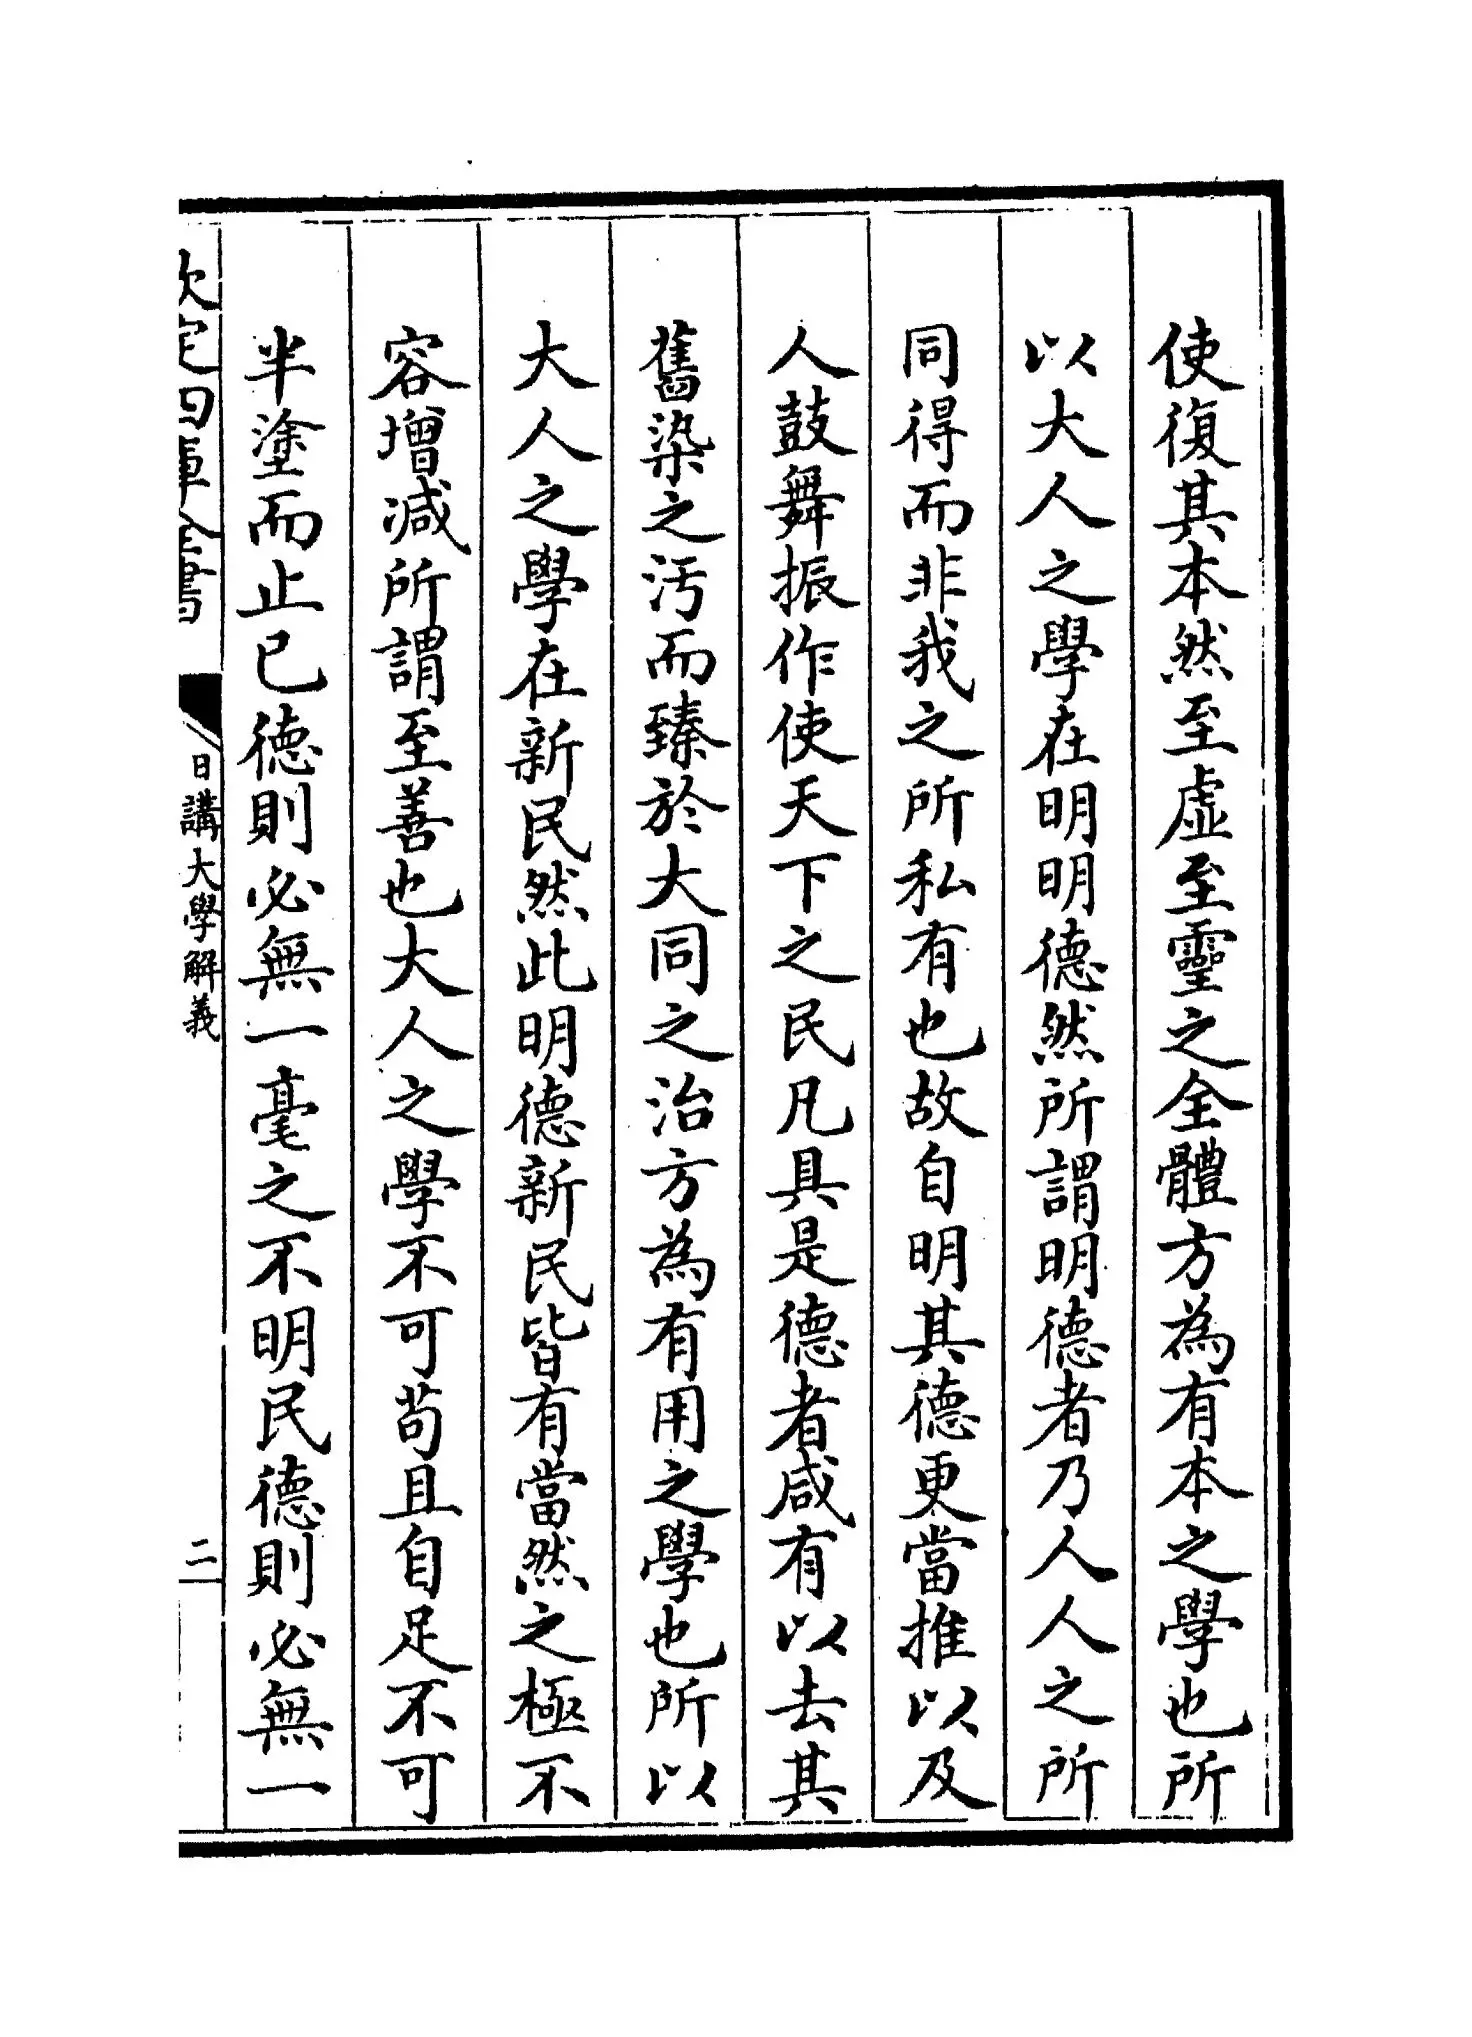 使復其本然至虛至靈之全體方為有本之學也所
以大人之學在明明德然所謂明德者乃人人之所
同得而非我之所私有也故自明其德更當推以及
人鼓舞振作使天下之民凡具是德者咸有以去其
舊染之汚而臻於大同之治方為有用之學也所以
大人之學在新民然此明德新民皆有當然之極不
容增減所謂至善也大人之學不可苟且自足不可
半塗而止已德則必無一毫之不明民德則必無一
欽定四庫全書
日講大學解義
二